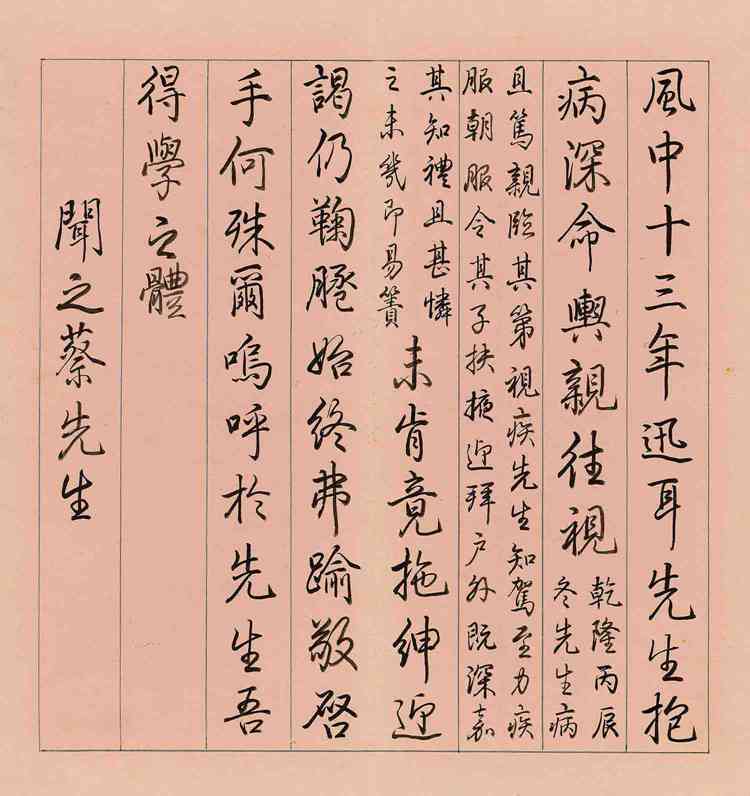 風中十三年迅耳先生抱
病深命輿親往視
乾隆丙辰
冬先生病
且篤親臨其第視疾先生知駕至力疾
服朝服令其子扶掖迎拜户外既深嘉
其知禮且甚憐
之未幾即易簀
未肯竟拖紳迎
謁仍鞠始終弗踰敬啓
手何殊爾嗚呼於先生吾
得學之體
聞之蔡先生